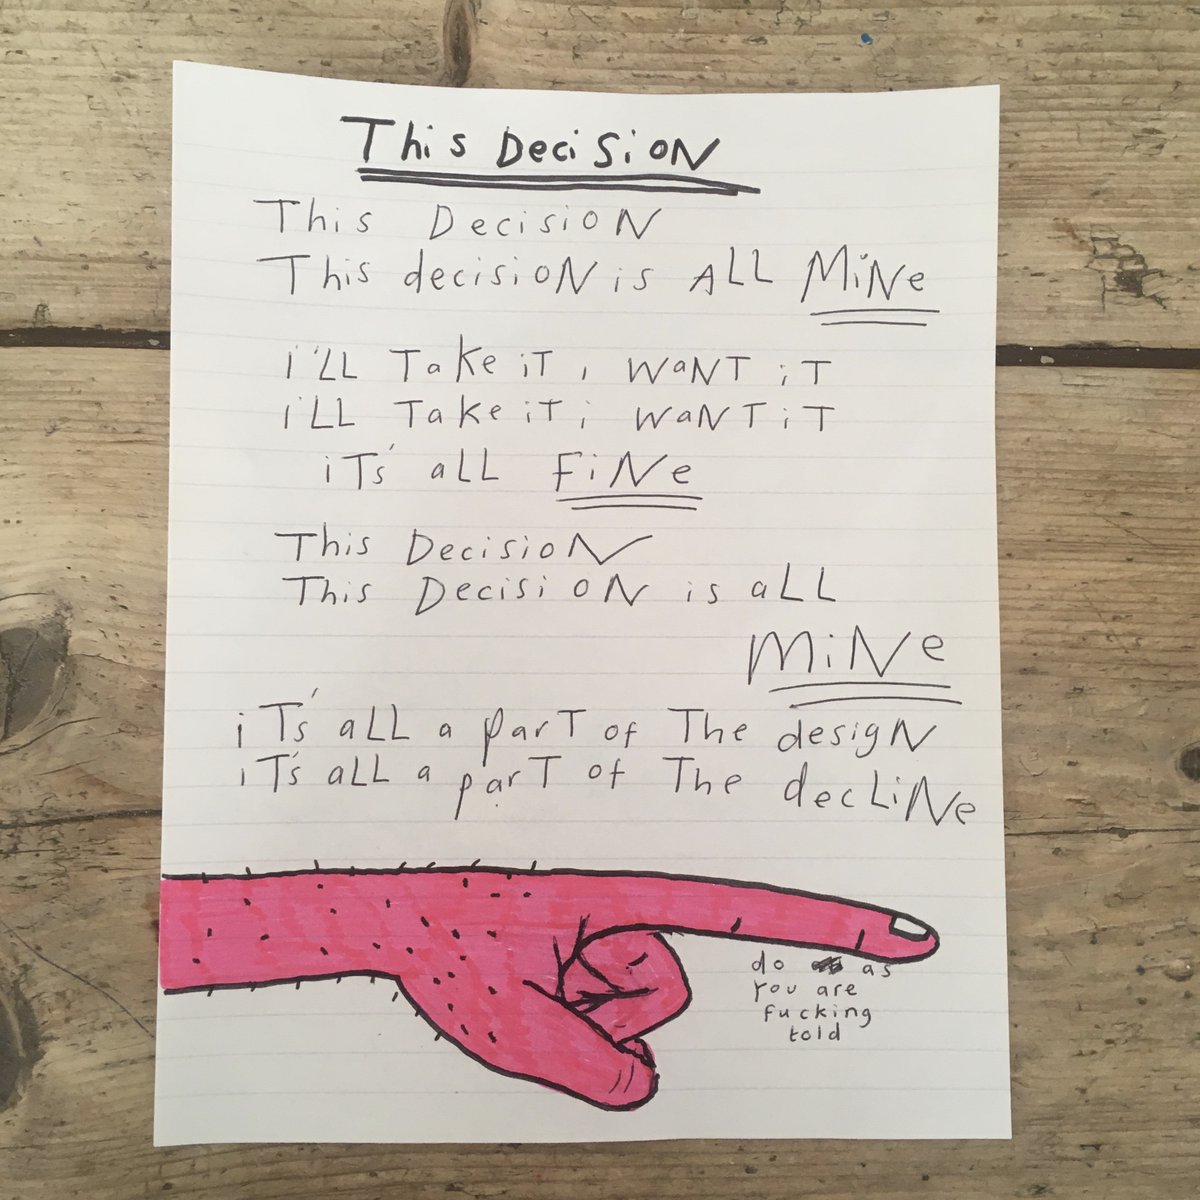 This Decision
This Decision
This decision is ALL MiNe
i'LL Take iT i WaNT iT
i'LL Take iT i WaNT iT
iTs' aLL FiNe
This Decision
This Decision is aLL
MiNe
iTs' aLL a parT of The desigN
iT's aLL a parT of The decLiNe
do as
you are
fucking
told